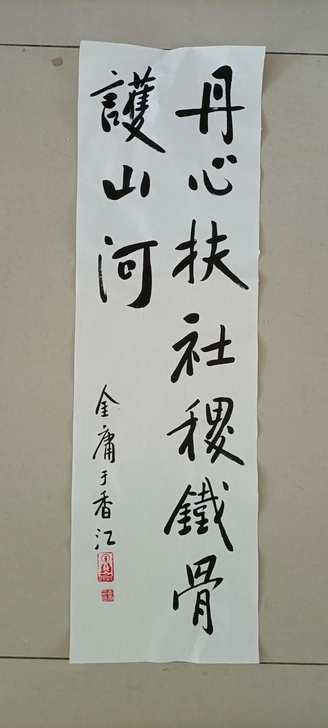 丹心扶社稷鐵骨
護山河
金庸于香江